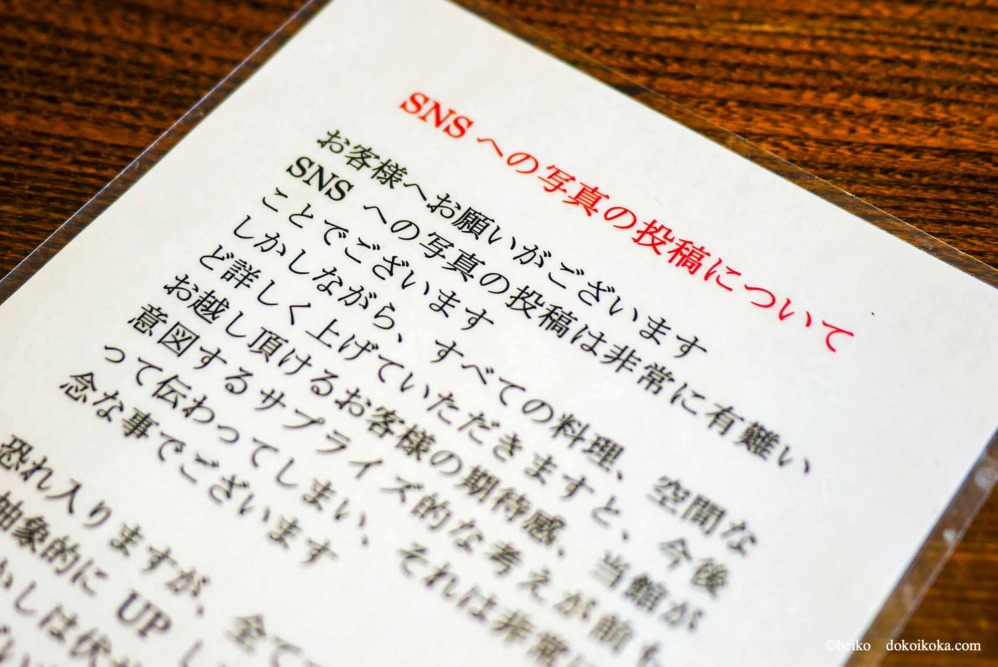 SNS への写真の投稿について
お客様へお願いがございます
SNS への写真の投稿は非常に有難い
ことでございます
しかしながら、すべての料理、空間な
ど詳しく上げていただきますと、今後
お越し頂けるお客様の期待感、当館が
意図するサプライズ的な考えが前も
って伝わってしまい、それは非常
念な事でございます
恐れ入りますが、全て
抽象的に UP し
かしは伏せ
©beiko dokoikoka.com